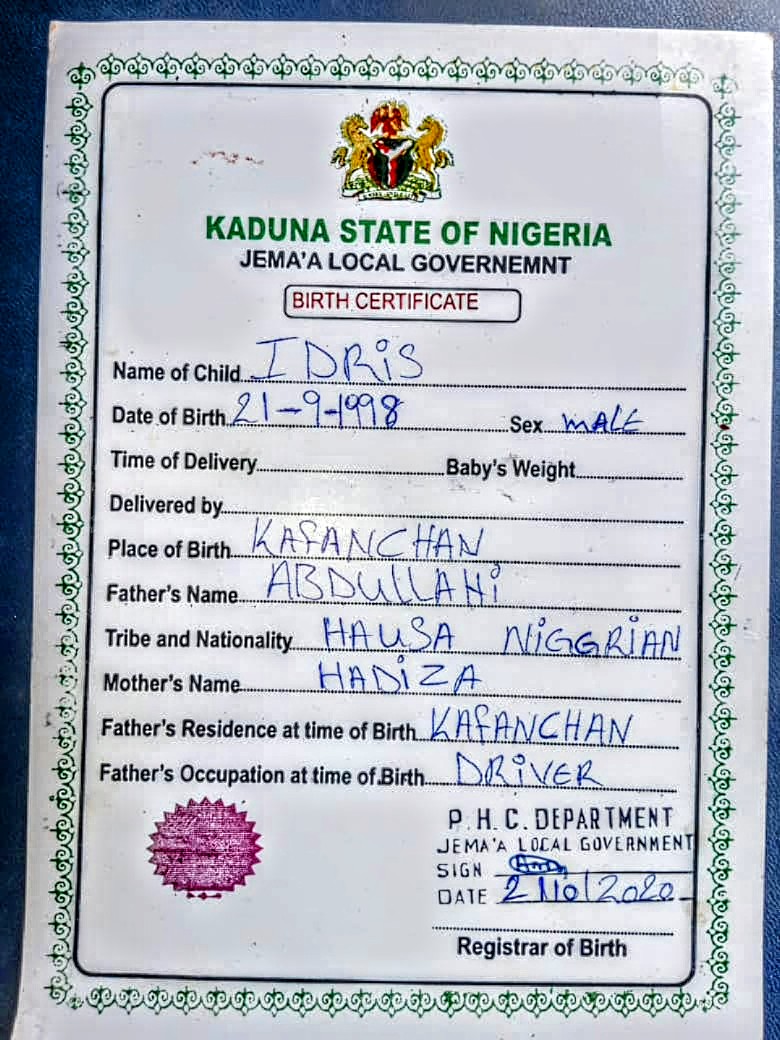 KADUNA STATE OF NIGERIA
JEMA'A LOCAL GOVERNEMNT
BIRTH CERTIFICATE
Name of Child IDRiS
Date of Birth 21-9-1998 Sex MALE
Time of Delivery Baby's Weight
Delivered by
Place of Birth KAfANCHAN
Father's Name ABDULLAHi
Tribe and Nationality HAUSA NiGGRiAN
Mother's Name HADiZA
Father's Residence at time of Birth KAfANCHAN
Father's Occupation at time of.Birth DRiVER
P.H.C. DEPARTMENT
JEMA'A LOCAL GOVERNMENT
SIGN
DATE 2/10/2020
Registrar of Birth